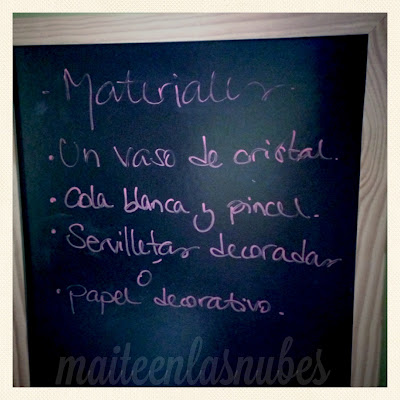 - Materiales.
· Un vaso de cristal.
· Cola blanca y pincel.
· Servilletas decoradas
o
· papel decorativo.
maiteenlasnubes